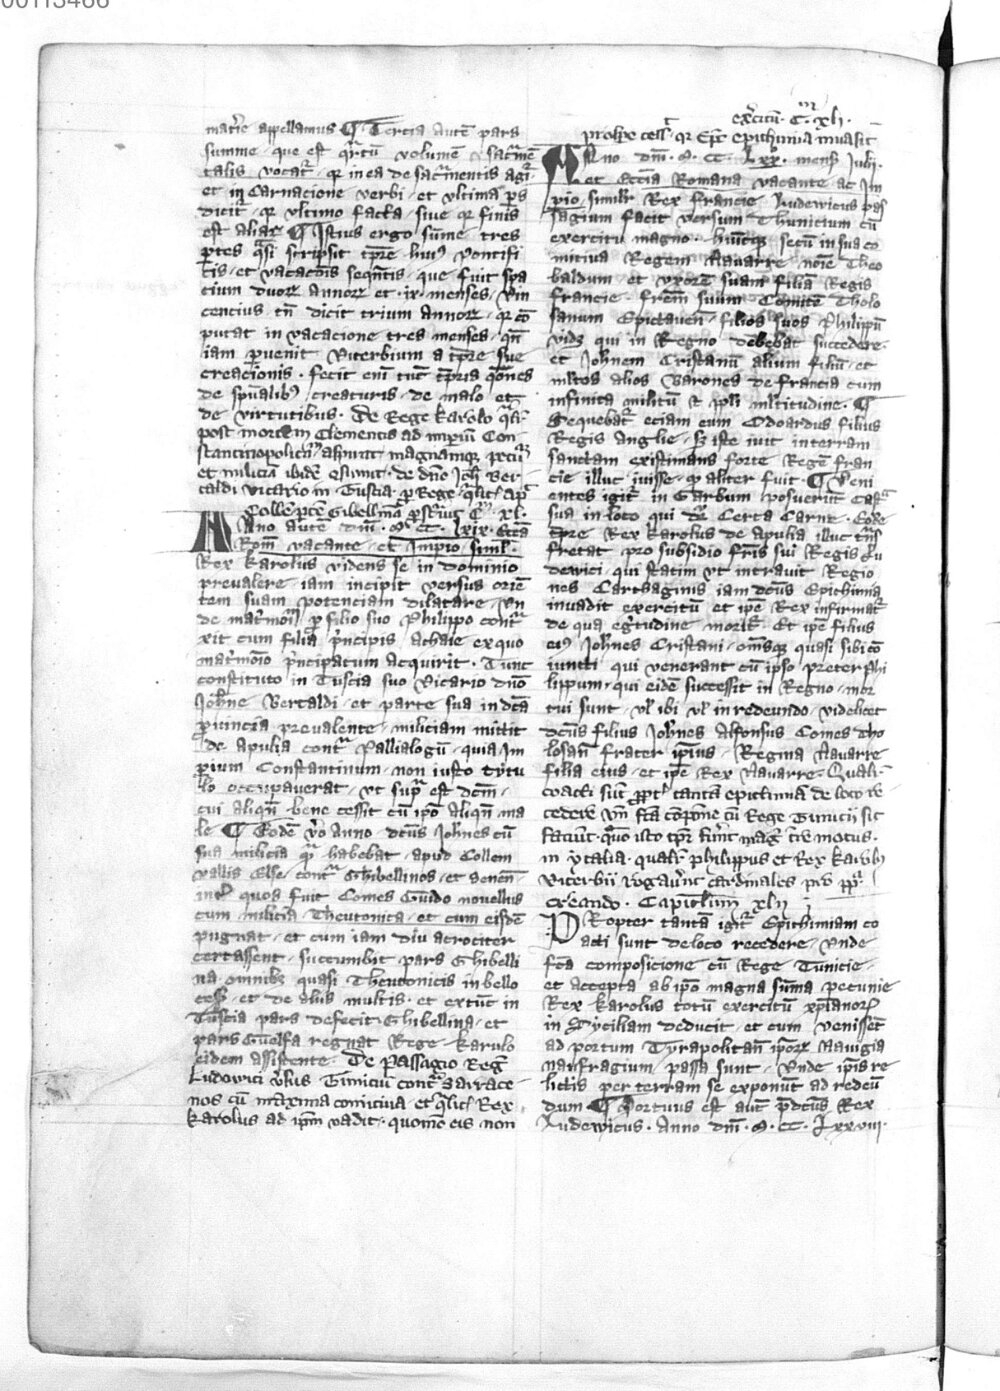 00113466
mat'ie appellamus ¶ Tercia autē pars
summe · que est q̄rtū volumē · sac'mē
talis vocat' · q̄ in ea de sac'mentis agi'
et incarnacione verbi · et vltima ps
dicit' q̄ vltimo facta siue q̄ finis
est aliaꝝ ¶ Istius ergo sum̄e tres
p̄tes q̄si scripsit tp̄re huiꝰ Pontifi
cis · et vacacōis seqn̄tis · que fuit spa
cium duoꝝ Annoꝝ et · ix · menses · Vin
cencius tn̄ dicit trium annoꝝ · q̄ cō
putat in vacacione tres menses · qn̄
iam p̄uenit Viterbium a tp̄re sue
creacionis · fecit em̄ tūc
de sp̄ualibꝰ creaturis · de malo et
de virtutibus · De Rege Karolo q̄lr̄
post mortem Clementis ad imperiū Con
stantinopolitn̄ aspirat
et miliciā ibidē · de dn̄o Joh̄ Ber
taldi vicario in Tuscia p̄ Rege ·
Colle p̄tē Gibellinā · C · xl ·
Anno autē dn̄i · M · CC · lxix · Eccā
Rom̄ vacante · et Imp̄io simil'
Rex Karolus videns se in dominio
preualere · iam incipit versus oriē
tem suam potenciam dilatare · Vn
de mat'moīu p̄ filio suo Philippo cont'
xit cum filia p'ncipis Achaie ex quo
mat'monio p'ncipatum acquirit · Tunc
constituto in Tuscia suo Vicario dn̄o
Joh̄ne Bertaldi · et parte sua in dcā
p̄uincia preualente · miliciam mittit
de apulia cont' Pallialogū · quia Im
p̄ium Constantinum · non iusto tytu
lo occupauerat · vt sup' est dcm̄ ·
cui aliqn̄ bene cessit cū ip̄o aliqn̄ ma
le ¶ Eodē v̄o anno dcūs Joh̄nes cū
sua milicia q̄ habebat · apud Collem
vallis Else · cont' Ghibellinos · et Senēn
int' quos fuit Comes Guido nouellus
cum milicia Theutonica · et cum eisdē
pugnat · et cum iam diu acrociter
certassent · succumbit pars Ghibelli
na · omnibꝫ quasi Theutonicis in bello
et de aliis multis · et extūc in
Tuscia pars defecit Ghibellina · et
pars Guelfa regnat Rege · Karulo
eidem assistente · De Passagio Reḡ
Ludowici v̄sus Tunicin cont' Sarrace
nos cū maxima comitiua · et q̄lit' Rex
Karolus ad ip̄m vadit · quomō eis non
exercitū · C · xlj ·
prospe cess' · q̄ Epichimia inualit
Anno dn̄i · M · CC · Lxx · mens̄ Julij ·
et Eccīa Romana vacante · ac Im
p̄io simil'r Rex Francie · Ludewicus pas
sagium facit versum Thunicium cū
exercitu magno · secū in sua co
mitiua Regem Nauarre · noīe Theo
baldum · et vxorē suam filiā Regis
Francie · fr̄em suum Comitē Tholo
sanum Epictauen̄ · filios suos Philippū
vidꝫ qui in Regno debebat succedere ·
et Joh̄nem Cristanū alium filiū · et
mltos alios Barones de Francia cum
infinita militū et mltitudine · ¶
Sequebat' eciam eum Odoardus filius
Regis Anglie · sꝫ iste iuit in terram
sanctam existimans forte Regē Fran
cie illuc iuisse · q̄ aliter fuit · ¶ Veni
entes igit' in Garbum posuerūt Cast'
sua in loco qui dr̄ Certa Carne · Eodē
tp̄re Rex Karolus de apulia illuc t'ns
fretat pro subsidio fr̄is sui Regis Lu
dewici · qui statim vt intrauit Regio
nes Carthaginis iam dcūs Epichimia
inuadit exercitū et ip̄e Rex infirmat'
de qua eg'tudine morit' Et ip̄e filius
eiꝰ Joh̄nes Cristani · om̄sqꝫ quasi sibi cō
iuncti qui venerant cū ipso preter Phi
lippum · qui eidē successit in Regno · mor
tui sunt · vl' ibi vl' in redeundo · videlicet
dcūs filius Joh̄nes Alfonsus Comes tho
losan̄ · Frater ip̄ius · Regina Nauarre
filia eius · et ip̄e Rex Nauarre · Qualit'
coacti sūt tantā epichimiā de loco re
cedere cū Rege Tunicij sic
faciūt · motus
in ytalia · qualit' philippus et Rex Karolꝰ
Viterbij rogauer̄t cardinales pro pp'
creando · Capitlum xlij
Propter tantā igit' Epichimiam co
acti sunt de loco recedere · Vnde
fcā composicione cū Rege Tunicie ·
et accepta ab ip̄o magna sūma pecunie
Rex Karolus totū exercitū xp̄ianoꝝ
in Syciliam deducit · et cum venissēt
ad portum Tyrapolitan̄ ip̄oꝝ Nauigia
naufragium passa sunt · Vnde ip̄is re
lictis per terram se exponūt ad redeū
dum ¶ Mortuus est aut̄ p̄dcūs Rex
Ludewicus · Anno dn̄i · M · CC · Lxxviij ·